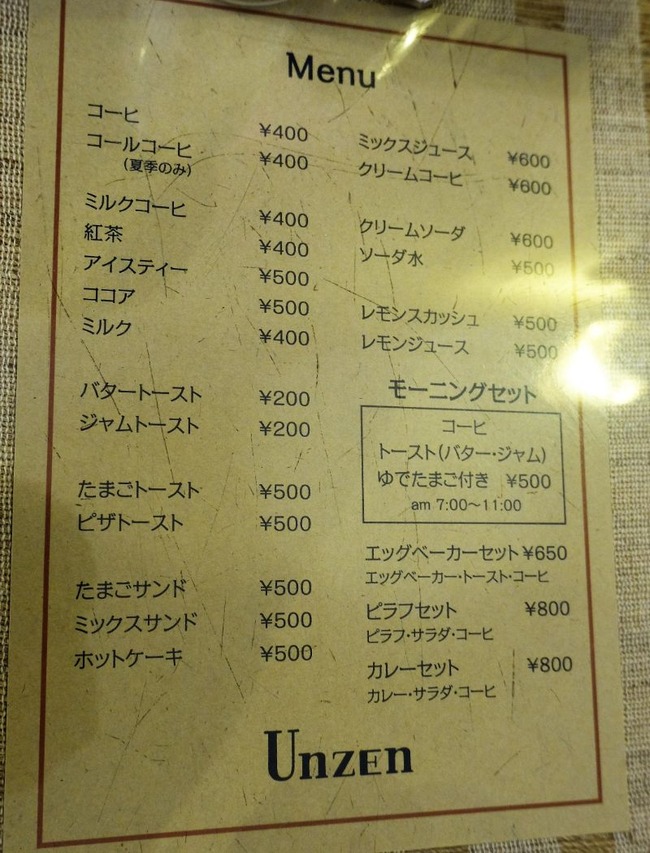 Menu
コーヒ ¥400
コールコーヒ ¥400
(夏季のみ)
ミルクコーヒ ¥400
紅茶 ¥400
アイスティー ¥500
ココア ¥500
ミルク ¥400
バタートースト ¥200
ジャムトースト ¥200
たまごトースト ¥500
ピザトースト ¥500
たまごサンド ¥500
ミックスサンド ¥500
ホットケーキ ¥500
ミックスジュース ¥600
クリームコーヒ ¥600
クリームソーダ ¥600
ソーダ水 ¥500
レモンスカッシュ ¥500
レモンジュース ¥500
モーニングセット
コーヒ
トースト(バター・ジャム)
ゆでたまご付き ¥500
am 7:00〜11:00
エッグベーカーセット ¥650
エッグベーカー・トースト・コーヒ
ピラフセット ¥800
ピラフ・サラダ・コーヒ
カレーセット ¥800
カレー・サラダ・コーヒ
UnZEn